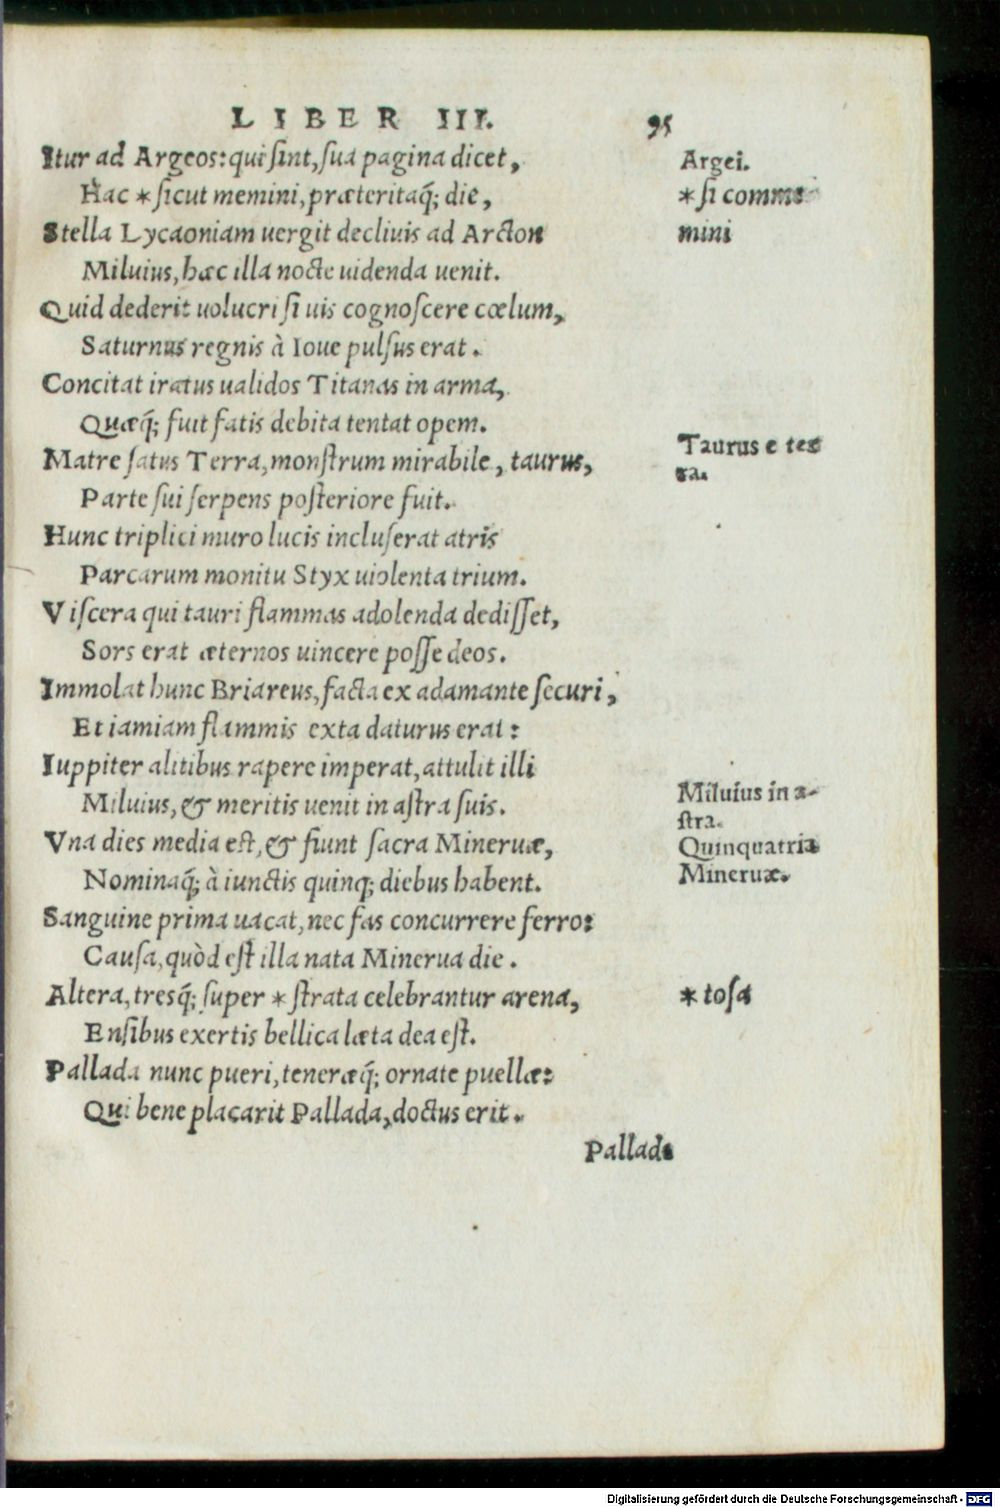 LIBER III.
95
Itur ad Argeos: qui sint, sua pagina dicet,
Hac * sicut memini, præteritaq́; die,
Stella Lycaoniam uergit decliuis ad Arcton
Miluius, hæc illa nocte uidenda uenit.
Quid dederit uolucri si uis cognoscere cœlum,
Saturnus regnis à Ioue pulsus erat.
Concitat iratus ualidos Titanas in arma,
Quæq́; fuit fatis debita tentat opem.
Matre satus Terra, monstrum mirabile, taurus,
Parte sui serpens posteriore fuit.
Hunc triplici muro lucis incluserat atris
Parcarum monitu Styx uiolenta trium.
Viscera qui tauri flammas adolenda dedisset,
Sors erat æternos uincere posse deos.
Immolat hunc Briareus, facta ex adamante securi,
Et iamiam flammis exta daturus erat:
Iuppiter alitibus rapere imperat, attulit illi
Miluius, & meritis uenit in astra suis.
Vna dies media est, & fiunt sacra Mineruæ,
Nominaq́; à iunctis quinq; diebus habent.
Sanguine prima uacat, nec fas concurrere ferro:
Causa, quòd est illa nata Minerua die.
Altera, tresq́; super * strata celebrantur arena,
Ensibus exertis bellica læta dea est.
Pallada nunc pueri, teneræq́; ornate puellæ:
Qui bene placarit Pallada, doctus erit.
Pallada
Argei.
* si comme
mini
Taurus e ter
ra.
Miluius in a-
stra.
Quinquatria
Mineruæ.
* tosa
Digitalisierung gefördert durch die Deutsche Forschungsgemeinschaft - DFG